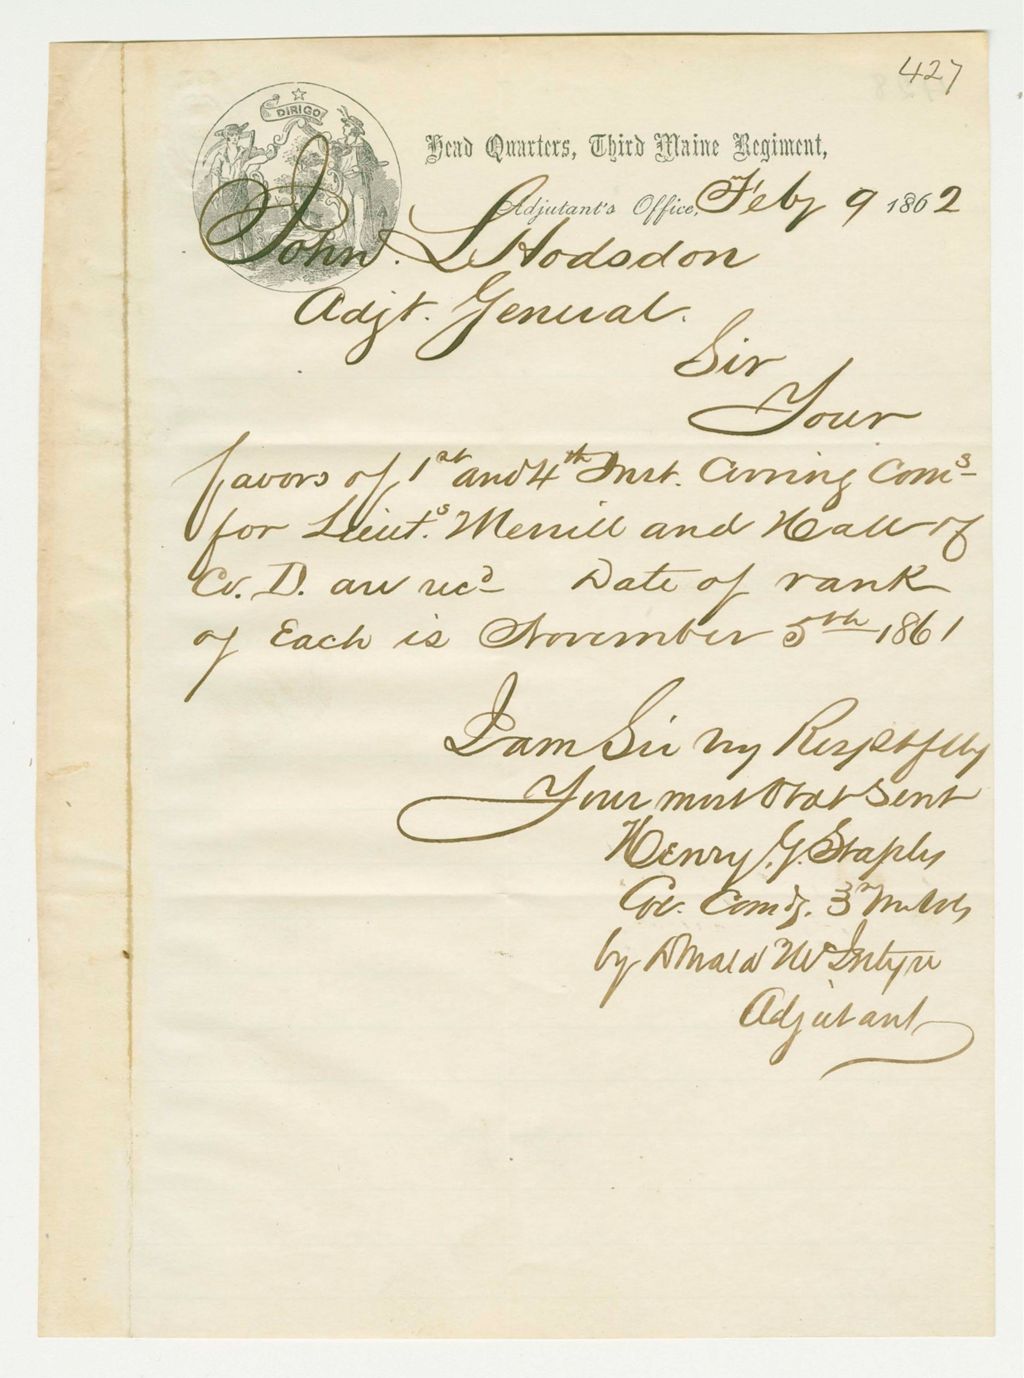 427
DIRIGO
Head Quarters, Third Maine Regiment,
Adjutant's Office, Feby 9 1862
John. L Hodsdon
Adjt. General.
Sir
Your
favors of 1st and 4th Inst. Covring Coms
for Lieut.s Merrill and Hall of
Co. D. are recd Date of rank
of Each is November 5th 1861
I am Sir Vry Respctflly
Your most Obdt Servt
Henry. G. Staples
Col. Comdg. 3d Me Vols
by Donald McIntyre
Adjutant